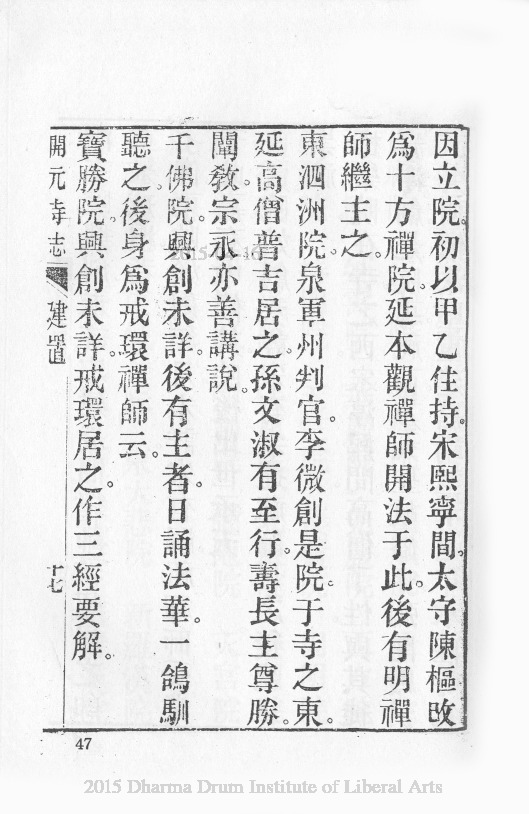 因立院。初以甲乙住持。宋熙寧間。太守陳樞改
爲十方禪院。延本觀禪師開法于此。後有明禪
師繼主之。
東泗洲院。泉軍州判官。李微創是院。于寺之東。
延高僧普吉居之。孫文淑有至行。壽長主尊勝。
闡教宗。永亦善講說。
千佛院。興創未詳。後有主者。日誦法華。一鴿馴
聽之。後身爲戒環禪師云。
寶勝院。興創未詳。戒環居之。作三經要解。
開元寺志 建置 十七
47
2015 Dharma Drum Institute of Liberal Arts